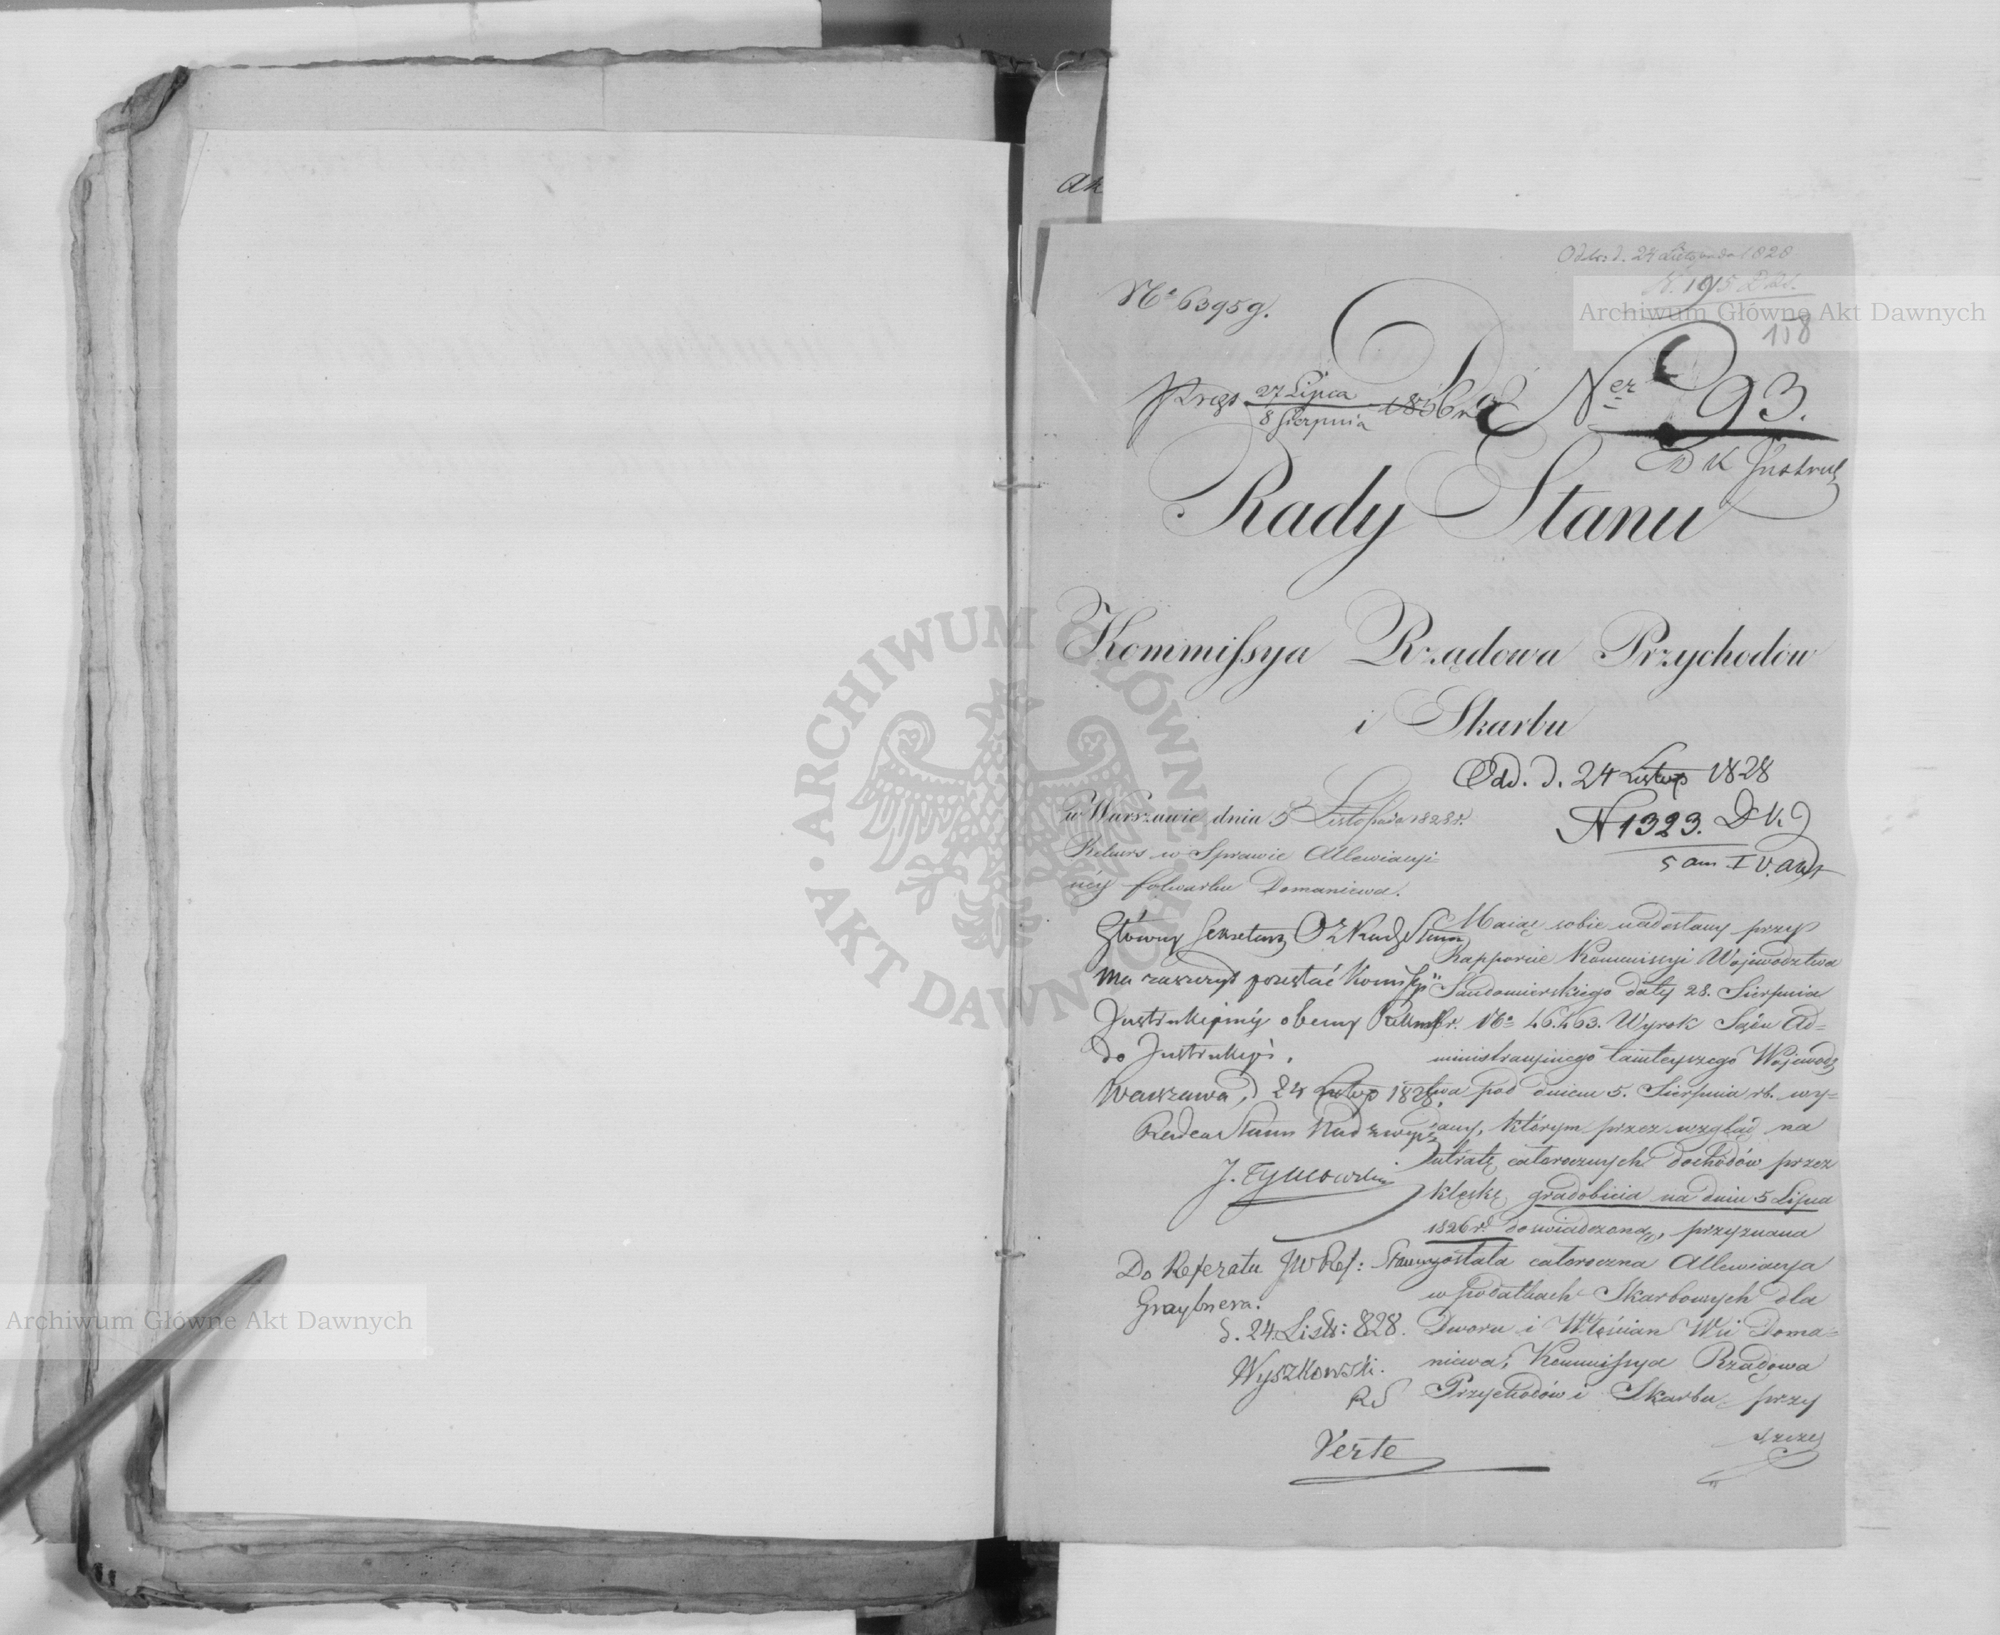 Odd: d. 24 Listopada 1828
N. 1915 D.
158
No 63959.
Do
Preze 27 Lipca 1836 r.
8 Sierpnia
Ner 93.
D K Instruk
Rady Stanu
Kommissya Rządowa Przychodów
i Skarbu
Odd. d. 24 Listop 1828
N 1323. D K J
w Warszawie dnia 5 Listopada 1828 r.
Rekurs w Sprawie Allewiacyi
folwarku Domaniewa.
Główny Sekretarz Rady Stanu
ma zaszczyt przesłać Kommissyi
Instrukcyjnéy obecny Rekurs
do Instrukcyi.
Warszawa, d 24 Listop 1828.
Radca Stanu Nadzwycz
J. Tymowski
Do Referatu JW Ref: Stanu
Graybnera.
d. 24 List: 828.
Wyszkowski.
RS
Verte
Maiąc sobie nadesłany przy
Rapporcie Kommissyi Województwa
Sandomierskiego daty 28. Sierpnia
r. No 46.463. Wyrok Sądu Ad=
ministracyinego tamteyszego Wojewodz
twa pod dniem 5. Sierpnia rb. wy=
dany, którym przez wzgląd na
utratę całorocznych dochodów przez
klęskę gradobicia na dniu 5 Lipca
1826 r. doswiadczoną, przyznana
została całoroczna Allewiacya
w podatkach Skarbowych dla
Dworu i Włościan Wsi Doma=
niewa, Kommissya Rządowa
Przychodów i Skarbu przy
Archiwum Główne Akt Dawnych
Archiwum Główne Akt Dawnych
ARCHIWUM GŁÓWNE AKT DAWNYCH